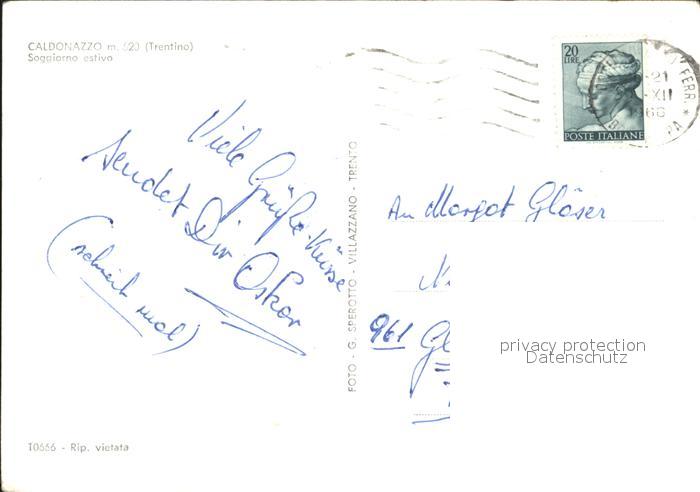 CALDONAZZO m. 520 (Trentino)
Soggiorno estivo
20
LIRE
POSTE ITALIANE
21
XII
66
FERR.
Viele Grüße-Küsse
sendet Dir Oskar
(schreib mal)
FOTO - G. SPEROTTO - VILLAZZANO - TRENTO
An Margot Gläser
961 Gl
privacy protection
Datenschutz
T0666 - Rip. vietata